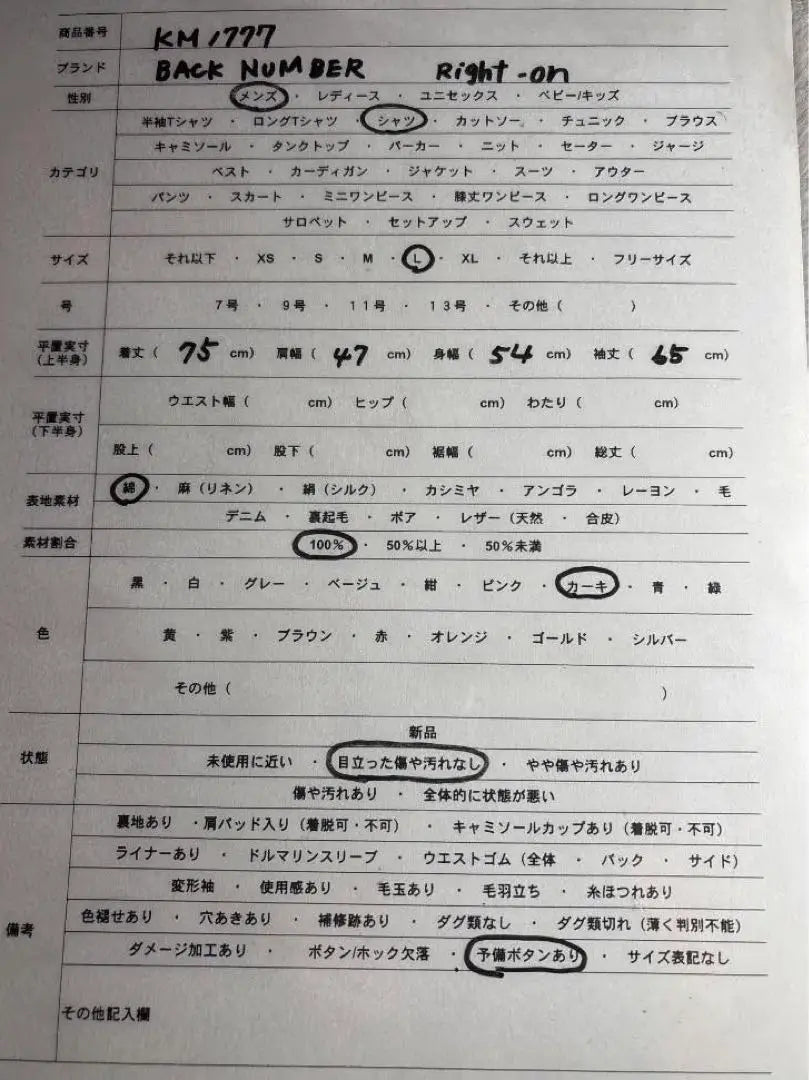 商品番号 KM1777
ブランド BACK NUMBER Right-on
性別 メンズ ・ レディース ・ ユニセックス ・ ベビー/キッズ
半袖Tシャツ ・ ロングTシャツ ・ シャツ ・ カットソー ・ チュニック ・ ブラウス
キャミソール ・ タンクトップ ・ パーカー ・ ニット ・ セーター ・ ジャージ
カテゴリ ベスト ・ カーディガン ・ ジャケット ・ スーツ ・ アウター
パンツ ・ スカート ・ ミニワンピース ・ 膝丈ワンピース ・ ロングワンピース
サロペット ・ セットアップ ・ スウェット
サイズ それ以下 ・ XS ・ S ・ M ・ L ・ XL ・ それ以上 ・ フリーサイズ
号 7号 ・ 9号 ・ 11号 ・ 13号 ・ その他 ( )
平置実寸 (上半身) 着丈 ( 75 cm) 肩幅 ( 47 cm) 身幅 ( 54 cm) 袖丈 ( 65 cm)
平置実寸 (下半身) ウエスト幅 ( cm) ヒップ ( cm) わたり ( cm)
股上 ( cm) 股下 ( cm) 裾幅 ( cm) 総丈 ( cm)
表地素材 綿 ・ 麻 (リネン) ・ 絹 (シルク) ・ カシミヤ ・ アンゴラ ・ レーヨン ・ 毛
デニム ・ 裏起毛 ・ ボア ・ レザー (天然 ・ 合皮)
素材割合 100% ・ 50%以上 ・ 50%未満
黒 ・ 白 ・ グレー ・ ベージュ ・ 紺 ・ ピンク ・ カーキ ・ 青 ・ 緑
色 黄 ・ 紫 ・ ブラウン ・ 赤 ・ オレンジ ・ ゴールド ・ シルバー
その他 ( )
新品
状態 未使用に近い ・ 目立った傷や汚れなし ・ やや傷や汚れあり
傷や汚れあり ・ 全体的に状態が悪い
裏地あり ・肩パッド入り (着脱可・不可) ・ キャミソールカップあり (着脱可・不可)
ライナーあり ・ ドルマリンスリーブ ・ ウエストゴム (全体 ・ バック ・ サイド)
変形袖 ・ 使用感あり ・ 毛玉あり ・ 毛羽立ち ・ 糸ほつれあり
備考 色褪せあり ・ 穴あきあり ・ 補修跡あり ・ ダグ類なし ・ ダグ類切れ (薄く判別不能)
ダメージ加工あり ・ ボタン/ホック欠落 ・ 予備ボタンあり ・ サイズ表記なし
その他記入欄